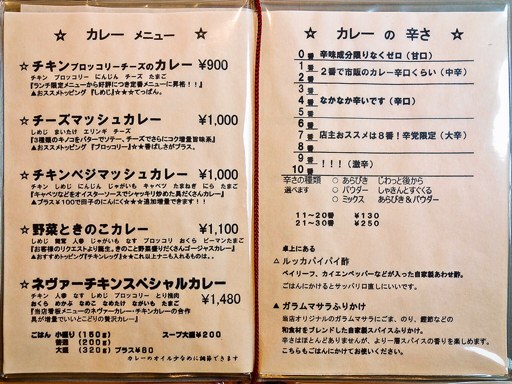 ☆ カレー メニュー ☆
☆チキンブロッコリーチーズのカレー ¥900
チキン ブロッコリー にんじん チーズ たまご
『ランチ限定メニューから好評につき定番メニューに昇格！！』
▲おススメトッピング 『しめじ』☆☆☆てっぱん。
☆チーズマッシュカレー ¥1,000
しめじ まいたけ エリンギ チーズ
『3種類のキノコをバターでソテー、チーズでさらにコク増量旨味系』
▲おススメトッピング 『ブロッコリー』☆☆香ばしさがプラス。
☆チキンベジマッシュカレー ¥1,000
チキン しめじ にんじん じゃがいも キャベツ たまねぎ にら たまご
『キャベツなどをオイスターソースでシャッキリ炒めた具だくさんカレー』
▲プラス¥100で団子のにんにく☆☆☆追加増量できます！！
☆野菜ときのこカレー ¥1,100
しめじ 舞茸 人参 じゃがいも なす ブロッコリ おくら ピーマンたまご
『お客様のリクエストより誕生。きのこと野菜盛りだくさんゴージャスカレー』
▲おすすめトッピング『チキンレッグ』★これ以上ナニも入れるものは。。
☆ネヴァーチキンスペシャルカレー
チキン 人参 なす しめじ ブロッコリー とり挽肉
おくら めかぶ なめこ なめたけ ながいも たまご ¥1,480
『当店看板メニューのネヴァーカレー・チキンカレーの合作
具が増量でいいとこどりの贅沢カレー』
ごはん 小盛り（150g） スープ大盛¥200
普通 （200g）
大盛 （320g）プラス¥80
カレーのオイル少なめに調節できます
☆ カレー の 辛さ ☆
0番 辛味成分限りなくゼロ（甘口）
1番
2番 2番で市販のカレー辛口くらい（中辛）
3番
4番 なかなか辛いです（辛口）
5番
6番
7番 店主おススメは8番！辛党限定（大辛）
8番
9番 ！！！（激辛）
10番
辛さの種類 ○あらびき じわっと後から
選べます ○パウダー しゃきんとすぐくる
○ミックス あらびき＆パウダー
11～20番 ¥130
21～30番 ¥250
卓上にある
△ルッカパイパイ酢
ベイリーフ、カイエンペッパーなどが入った自家製あわせ酢。
ごはんにかけるとサッパリ口直しにいいです。
▲ガラムマサラふりかけ
当店オリジナルのガラムマサラにごま、のり、鰹節などの
和食材をブレンドした自家製スパイスふりかけ。
辛さはほとんどありませんが、より一層スパイスの香りを楽しめます。
こちらもごはんにかけてお使いください。